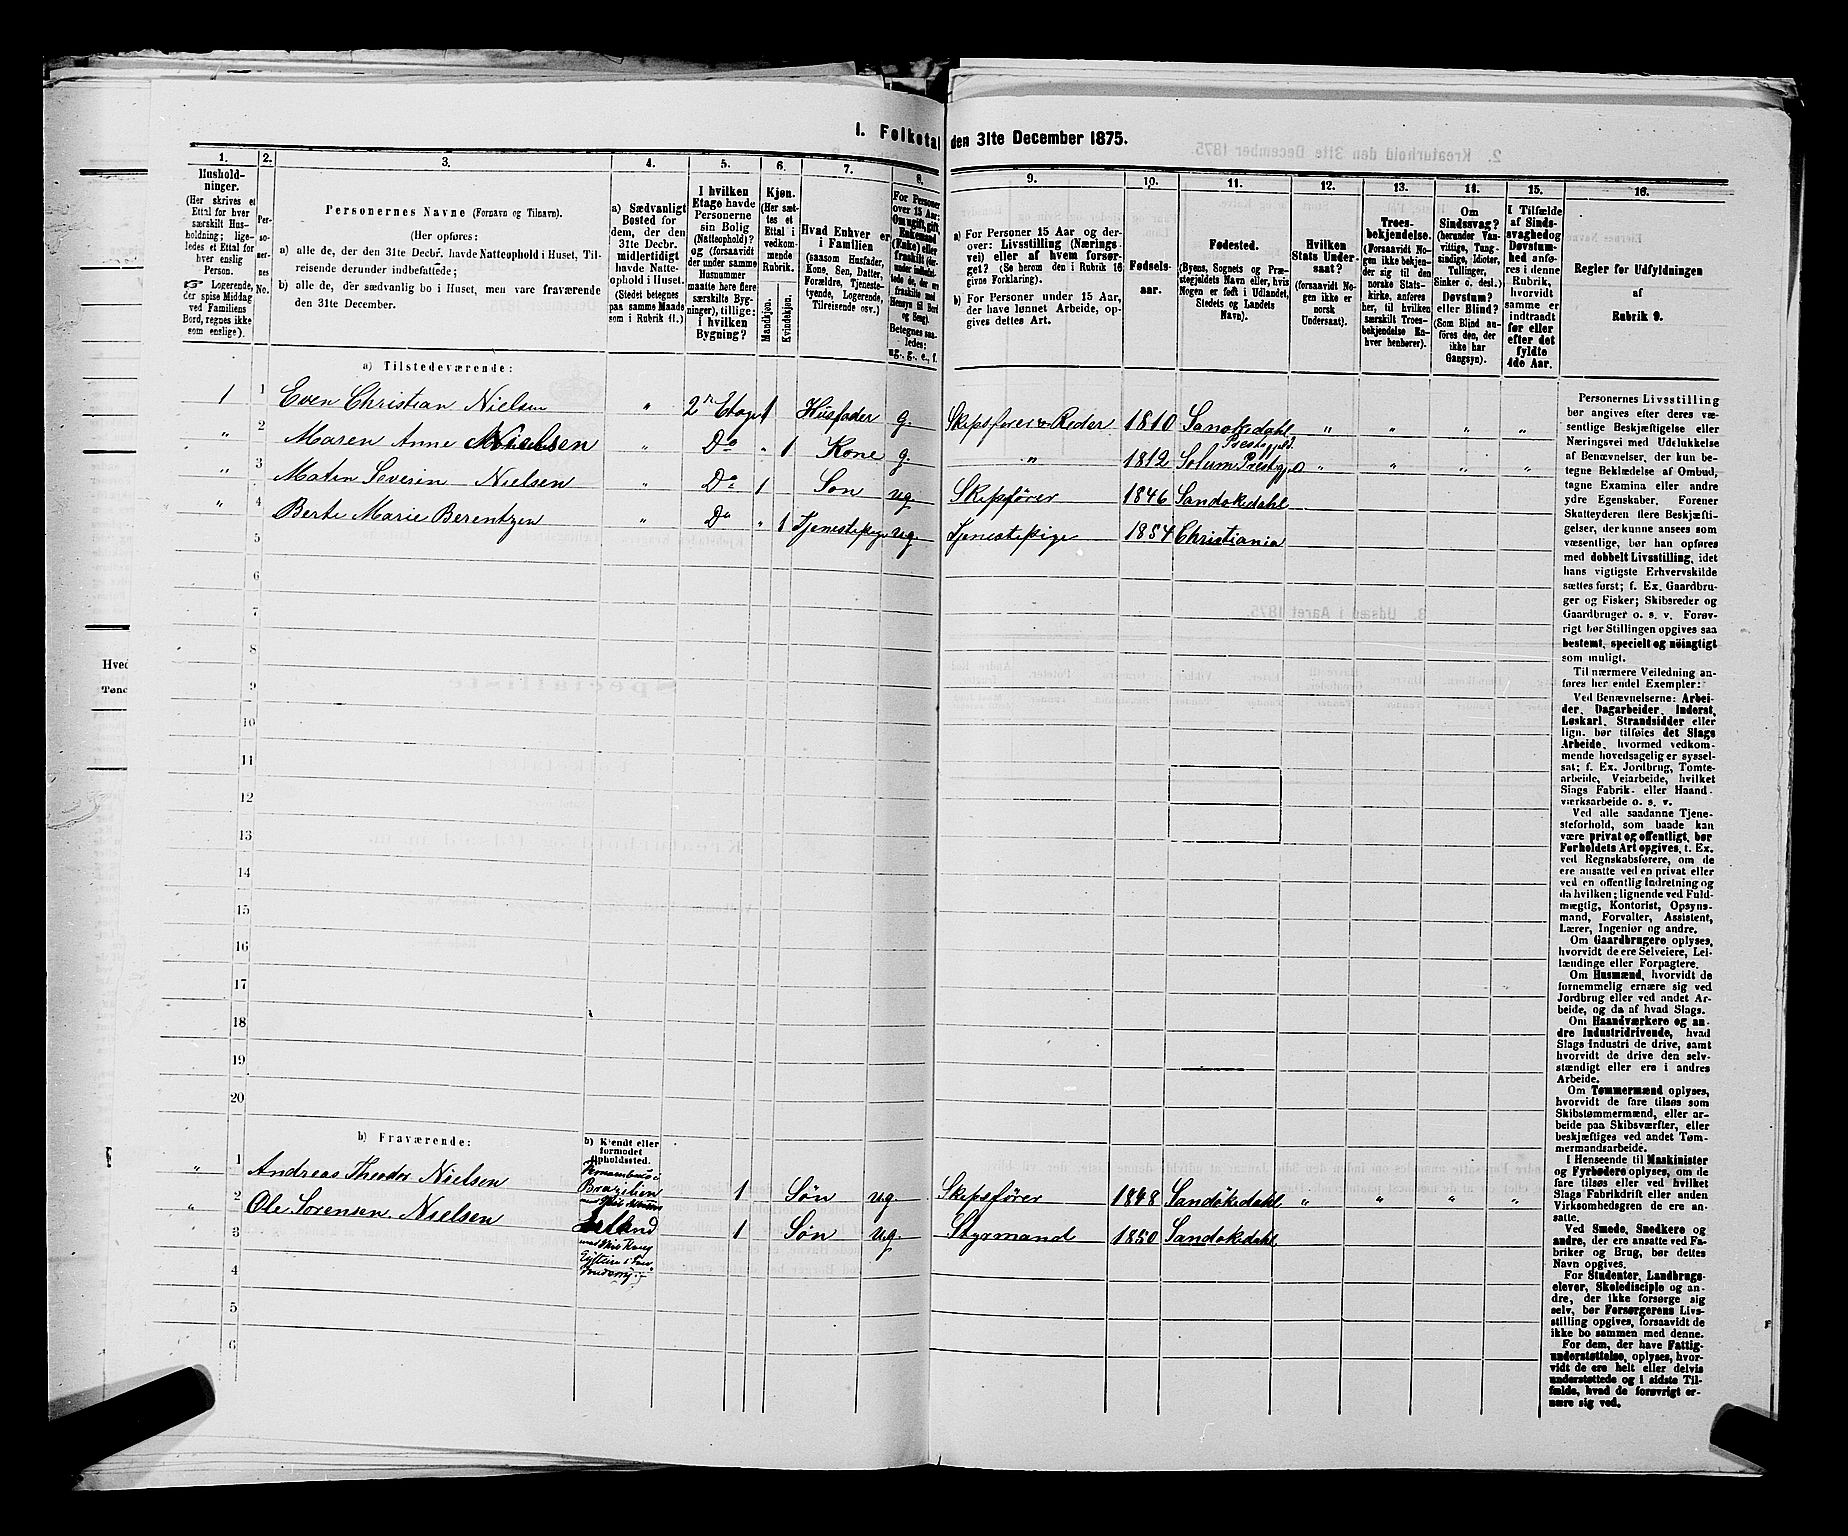 I. Folketal den 31te December 1875.
1. 2. 3. 4. 5. 6. 7. 8. 9. 10. 11. 12. 13. 14. 15. 16.
Husholdninger.
(Her skrives et
Ettal for hver
særskilt Husholdning;
ligeledes et Ettal for
hver enslig
Person.
Logerende,
der spise Middag
ved Familiens
Bord, regnes ikke
som enslige).
Personernes No.
Personernes Navne (Fornavn og Tilnavn).
(Her opføres:
a) alle de, der den 31te Decbr. havde Natteophold i Huset, Tilreisende derunder indbefattede;
b) alle de, der sædvanlig bo i Huset, men vare fraværende
den 31te December.
a) Sædvanligt
Bosted for
dem, der den
31te Decbr.
midlertidigt
havde Natteophold
i Huset.
(Stedet betegnes
paa samme Maade
som i Rubrik 11.)
I hvilken
Etage havde
Personerne
sin Bolig
(Natteophold)?
og (forsaavidt
der under samme
Husnummer
maatte høre flere
særskilte Bygninger),
tillige:
i hvilken
Bygning?
Kjøn.
(Her sættes
et
Ettal i
vedkommende
Rubrik.
Mandkjøn. Kvindekjøn.
Hvad Enhver er
i Familien
(saasom Husfader,
Kone, Søn, Datter,
Forældre, Tjenestetyende,
Logerende,
Tilreisende osv.)
For Personer
over 15 Aar:
Om ugift, gift,
Enkemand
(Enke) eller
fraskilt
Betegnes saaledes:
ug., g., e., f.
a) For Personer 15 Aar og derover:
Livsstilling (Næringsvei)
eller af hvem forsørget?
(Se herom den i Rubrik 16
givne Forklaring).
b) For Personer under 15 Aar,
der have lønnet Arbeide, opgives
dettes Art.
Fødselsaar.
Fødested.
(Byens, Sognets og Præstegjeldets
Navn eller, hvis
Nogen er født i Udlandet,
Stedets og Landets
Navn).
Hvilken
Stats Undersaat?
(forsaavidt Nogen
ikke er
norsk
Undersaat).
Troesbekjendelse.
(Forsaavidt Nogen
ikke bekjender
sig til den
norske Statskirke,
anføres
her, til hvilken
særskilt Troesbekjendelse
Enhver
henhører).
Om
Sindssvag?
(herunder Vanvittige,
Tungsindige,
Idioter,
Tullinger,
Sinker o. desl.)
Døvstum?
eller Blind?
(Som Blind anføres
den, der
ikke har
Gangsyn).
I Tilfælde
af Sindssvaghed
og
Døvstumhed
anføres
i denne
Rubrik,
hvorvidt
samme er
indtraadt
før eller
efter det
fyldte
4de Aar.
Regler for Udfyldningen
af
Rubrik 9.
a) Tilstedeværende:
1 1 Even Christian Nielsen " 2n Etage 1 Husfader g. Skipsfører Reder 1810 Sanokedahl Prestegjeld " " " "
" 2 Maren Anne Nielsen " Do 1 Kone g. " 1812 Solum " " " "
" 3 Matin Severin Nielsen " Do 1 Søn ug. Skipsfører 1846 Sandøkedahl
" 4 Berte Marie Berentzen " Do " 1 Tjenestepige ug. Tjenestepige 1854 Christiania
5
6
7
8
9
10
11
12
13
14
15
16
17
18
19
20
b) Fraværende:
b) Kjendt eller
formodet
Opholdssted.
" 1 Andreas Theodor Nielsen Brazilien 1 Søn ug. Skipsfører 1848 Sandökedahl " " " "
" 2 Ole Sørensen Nielsen 1 Søn ug. Styrmand 1850 Sandøkedahl
3
4
5
6
Personernes Livsstilling
bør angives efter deres væsentlige
Beskjæftigelse eller
Næringsvei med Udelukkelse
af Benævnelser, der kun betegne
Beklædelse af Ombud,
tagne Examina eller andre
ydre Egenskaber. Forener
Skatteyderen flere Beskjæftigelser,
der kunne ansees som
væsentlige, bør han opføres
med dobbelt Livsstilling, idet
hans vigtigste Erhvervskilde
sættes først; f. Ex. Gaardbruger
og Fisker; Skibsreder og
Gaardbruger o. s. v. Forøvrigt
bør Stillingen opgives saa
bestemt, specielt og nöiagtigt
som muligt.
Til nærmere Veiledning anføres
her endel Exempler:
Ved Benævnelserne: Arbeider,
Dagarbeider, Inderst,
Løskarl, Strandsidder eller
lign. bør tilføies det Slags
Arbeide, hvormed vedkommende
hovedsagelig er sysselsat;
f. Ex. Jordbrug, Tomtearbeide,
Veiarbeide, hvilket
Slags Fabrik- eller Haandværksarbeide
o. s. v.
Ved alle saadanne Tjenesteforhold,
som baade kan
være privat og offentligt, bør
Forholdets Art opgives, t. Ex.
ved Regnskabsførere, om de
ere ansatte ved en privat eller
ved en offentlig Indretning og
da hvilken; lignende ved Fuldmægtig,
Kontorist, Opsynsmand,
Forvalter, Assistent,
Lærer, Ingeniør og andre.
Om Gaardbrugere oplyses,
hvorvidt de ere Selveiere, Leilændinge
eller Forpagtere.
Om Husmænd, hvorvidt de
fornemmelig ernære sig ved
Jordbrug eller ved andet Arbeide,
og da af hvad Slags.
Om Haandværkere og andre
Industridrivende, hvad
Slags Industri de drive, samt
hvorvidt de drive den selvstændigt
eller ere i andres
Arbeide.
Om Tømmermænd oplyses,
hvorvidt de fare tilsøs som
Skibstømmermænd, eller arbeide
paa Skibsværfter, eller
beskjæftiges ved andet Tømmermandsarbeide.
I Henseende til Maskinister
og Fyrbødere oplyses, om de
fare tilsøs eller ved hvilket
Slags Fabrikdrift eller anden
Virksomhedsgren de ere ansatte.
Ved Smede, Snedkere og
andre, der ere ansatte ved Fabriker
og Brug, bør dettes
Navn opgives.
For Studenter, Landbrugselever,
Skoledisciple og andre,
der ikke forsørge sig
selv, bør Forsørgerens Livsstilling
opgives, forsaavidt de
ikke bo sammen med denne.
For dem, der have Fattigunderstøttelse,
oplyses, hvorvidt
de ere helt eller delvis
understøttede og i sidste Tilfælde,
hvad de forøvrigt ernære
sig ved.
Hved
Tønd